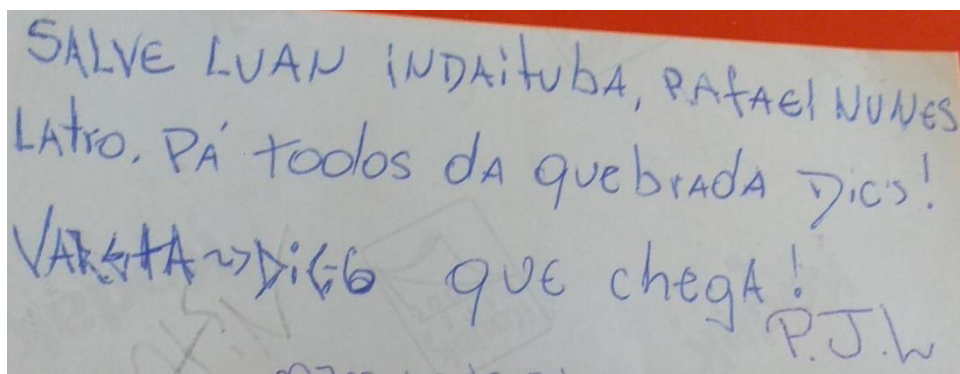 SALVE LUAN iNDAitubA, RAfAEl NUNES
LAtro. PÁ todos dA quebrADA DiCs!
DiEGo quE chegA!
P.J.L